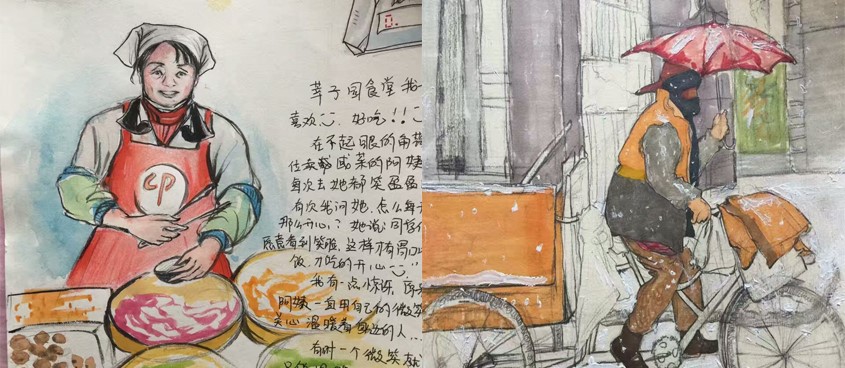 CP
莘子园食堂 我
喜欢 好吃!!
在不起眼的角落
咸菜的阿姨
每次去她都笑盈盈
有次我问她,怎么每
那么开心?她说:同学
愿意看到笑脸,这样才有胃口
饭,才吃的开心
我有一点惊讶
阿姨一直用自己的微笑
关心 温暖着身边的人...
有时一个微笑就